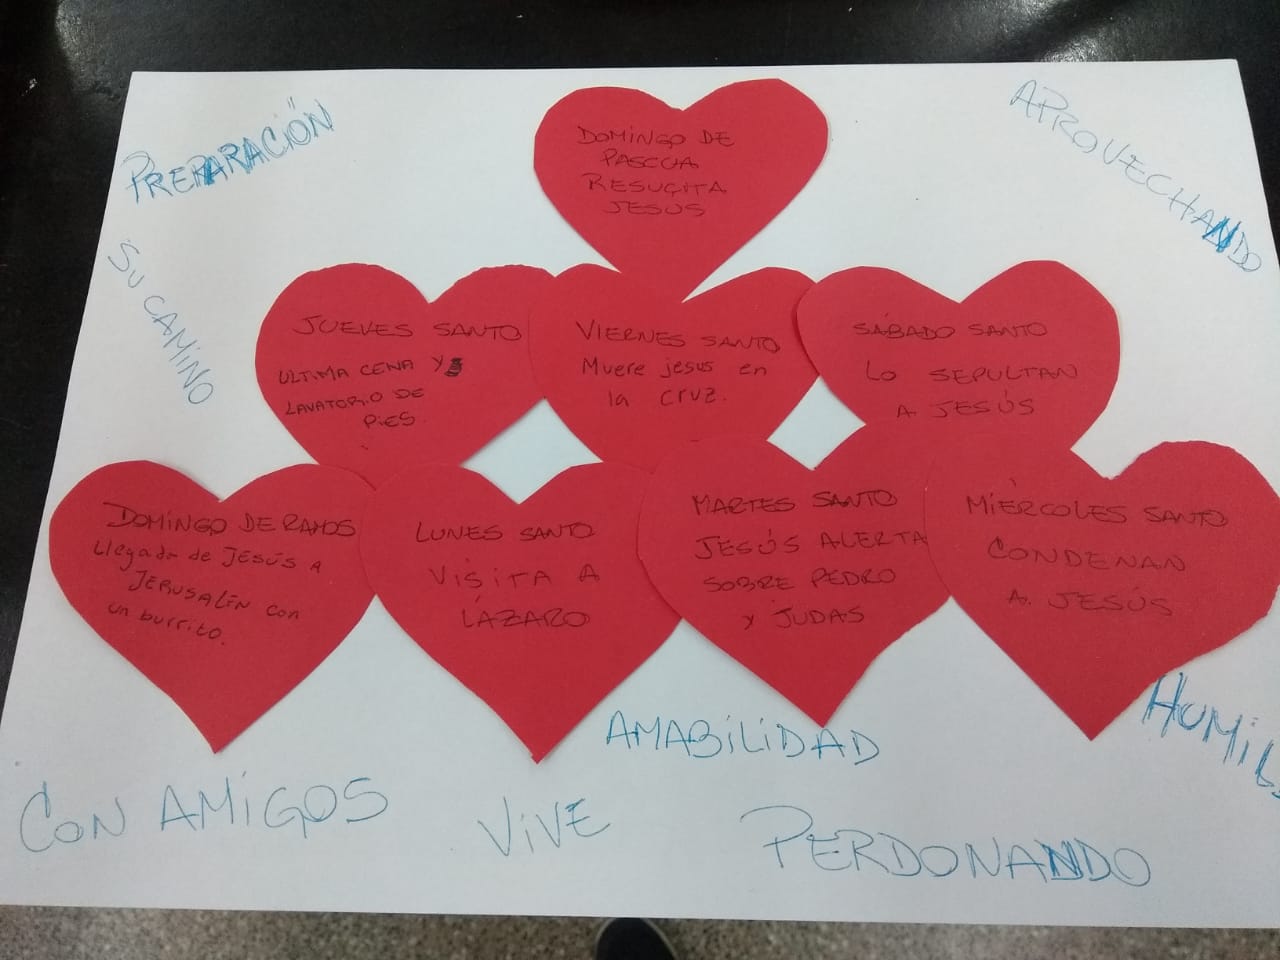 PREPARACIÓN
APROVECHANDO
SU CAMINO
DOMINGO DE
PASCUA
RESUCITA
JESÚS
JUEVES SANTO
ULTIMA CENA Y
LAVATORIO DE
PIES.
VIERNES SANTO
Muere jesus en
la cruz.
SÁBADO SANTO
LO SEPULTAN
A JESÚS
DOMINGO DE RAMOS
Llegada de JESÚS A
JERUSALÉN con
un burrito.
LUNES SANTO
VISITA A
LÁZARO
MARTES SANTO
JESÚS ALERTA
SOBRE PEDRO
Y JUDAS
MIÉRCOLES SANTO
CONDENAN
A JESÚS
AMABILIDAD
CON AMIGOS
VIVE
PERDONANDO